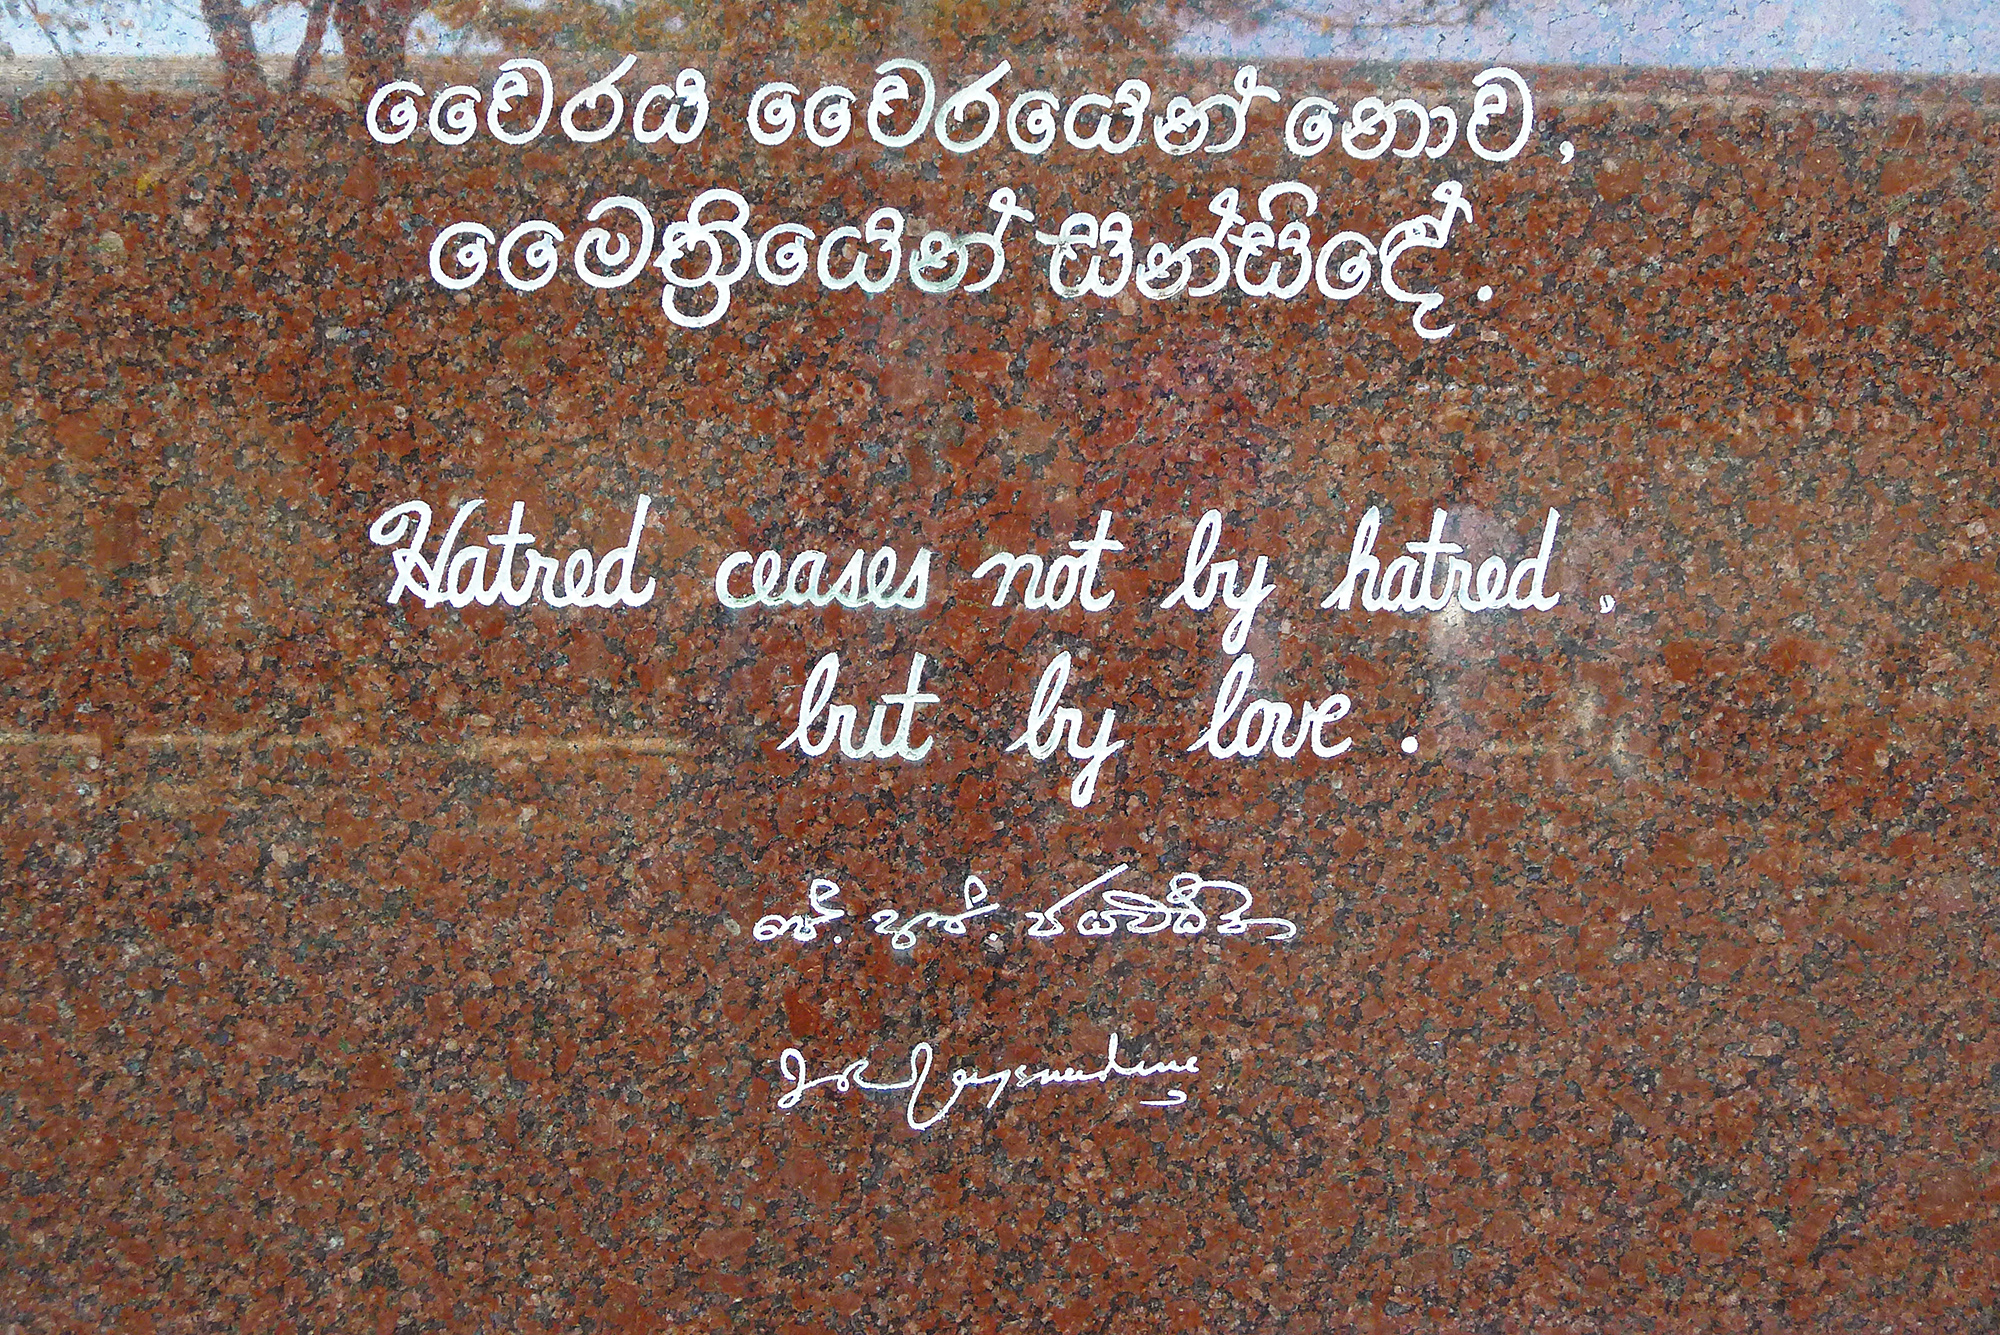 වෛරය වෛරයෙන් නොව,
මෛත්‍රියෙන් සන්සිඳේ.
Hatred ceases not by hatred,
but by love.
ජේ. ආර්. ජයවර්ධන
J R Jayewardene